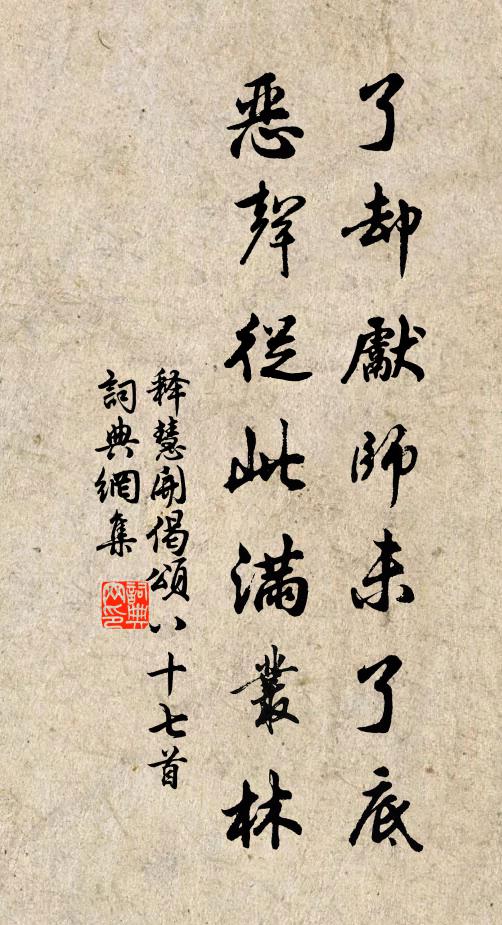 了却獻師未了底
惡聲從此滿叢林
释慧開偈頌八十七首
詞典網集
詞典网印